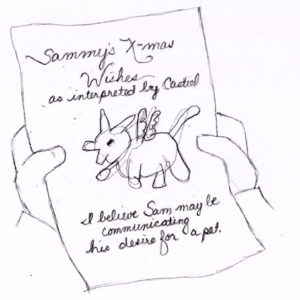 Sammy's X-mas
Wishes
as interpreted by Castiel
I believe Sam may be
communicating
his desire for a pet.